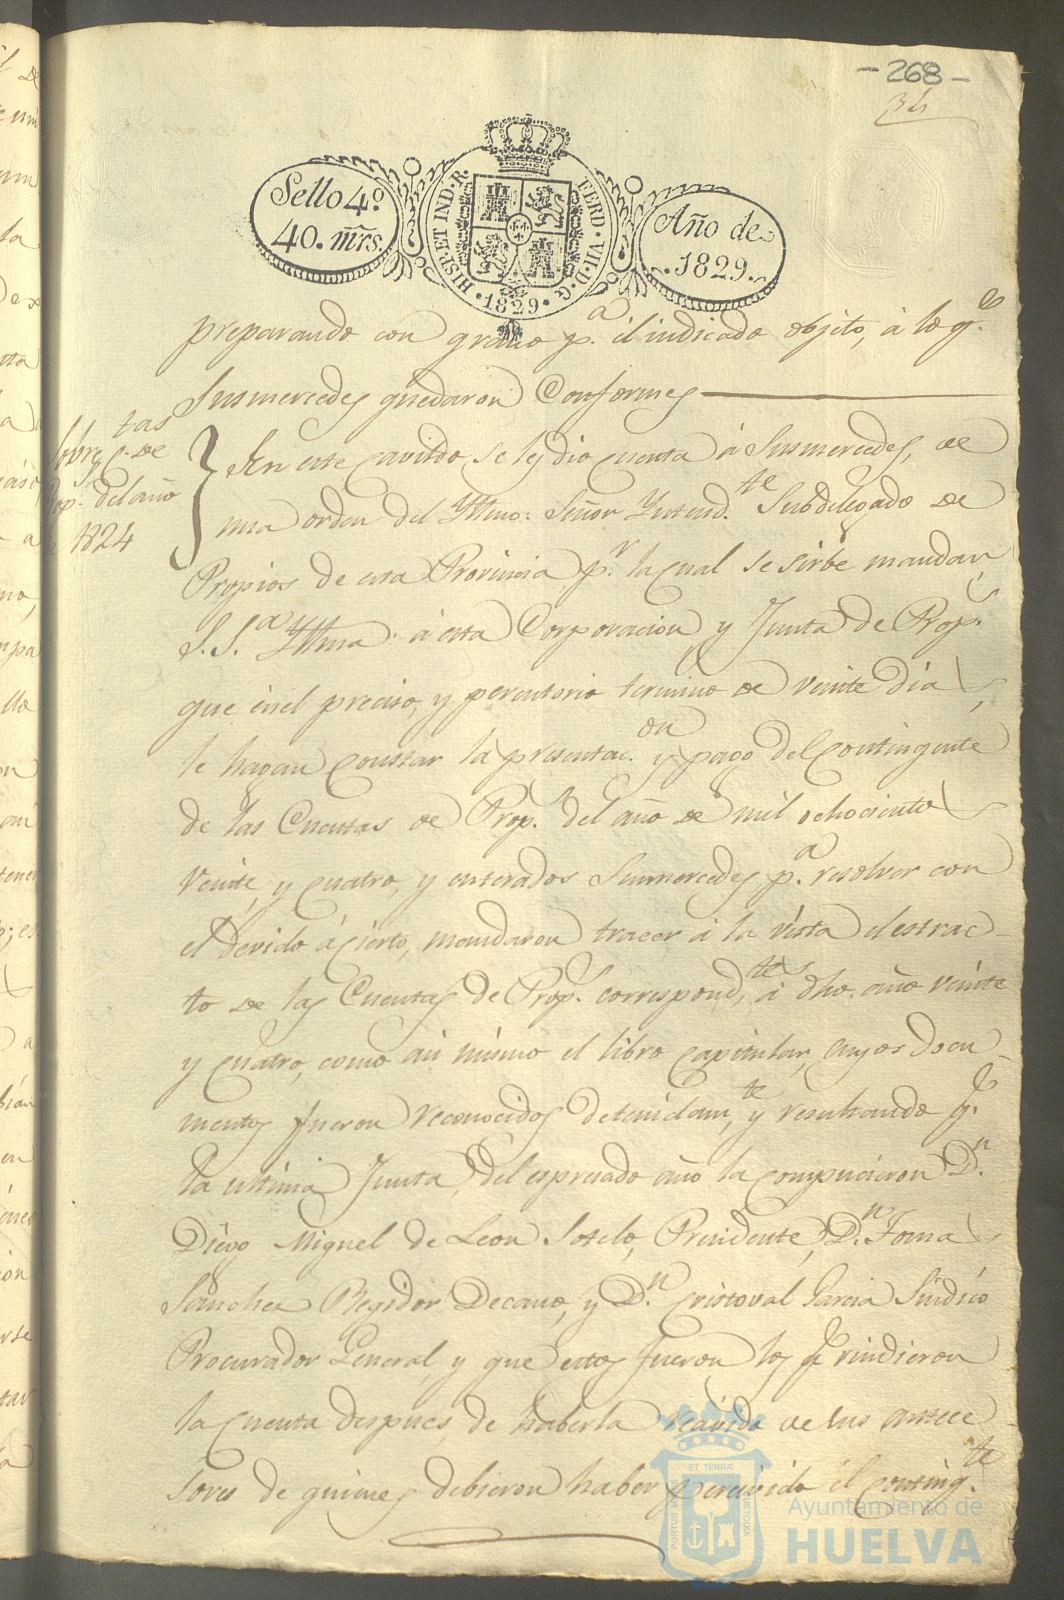 -268-
34
Sello 4º
40. mrs.
HISP. ET IND. R.
FERD. VII. D. G.
.1829.
Año de
.1829.
preparando con grano p.a el indicado objeto, á lo q.e
Susmercedes quedaron Conformes
Sobre
tas
C. de
Prop.s del año
de 1824
En este cavildo se les dio cuenta á Susmercedes, de
una orden del Yltmo: Señor Yntend.te Subdelegado de
Propios de esta Provincia p.r la cual se sirbe mandar
S. S.a Yltma. á esta Corporacion y Junta de Prop.s
que en el preciso, y perentorio termino de veinte dias
le hagan constar la presentac.on y pago del Contingente
de las Cuentas de Prop.s del año de mil ochocientos
veinte, y cuatro, y enterados Susmercedes p.a resolver con
el devido ácierto, mandaron traer á la vista el estrac-
to de las Cuentas de Prop.s correspond.tes á dho. año veinte
y cuatro, como asi mismo el libro capitular, cuyos docu-
mentos fueron reconocidos detenidam.te y resultando q.e
la ultima Junta, del espresado año la compusieron D.n
Diego Miguel de Leon Sotelo, Presidente, D.n Tomas
Sanchez Regidor Decano, y D.n Cristoval Garcia Sindico
Procurador General, y que estos fueron los q.e rindieron
la cuenta despues de haberla recivido de sus antece-
sores de quienes debieron haber percivido el conting.te
PORTUS MARIS
ET TERRÆ
CUSTODIA
Ayuntamiento de
HUELVA